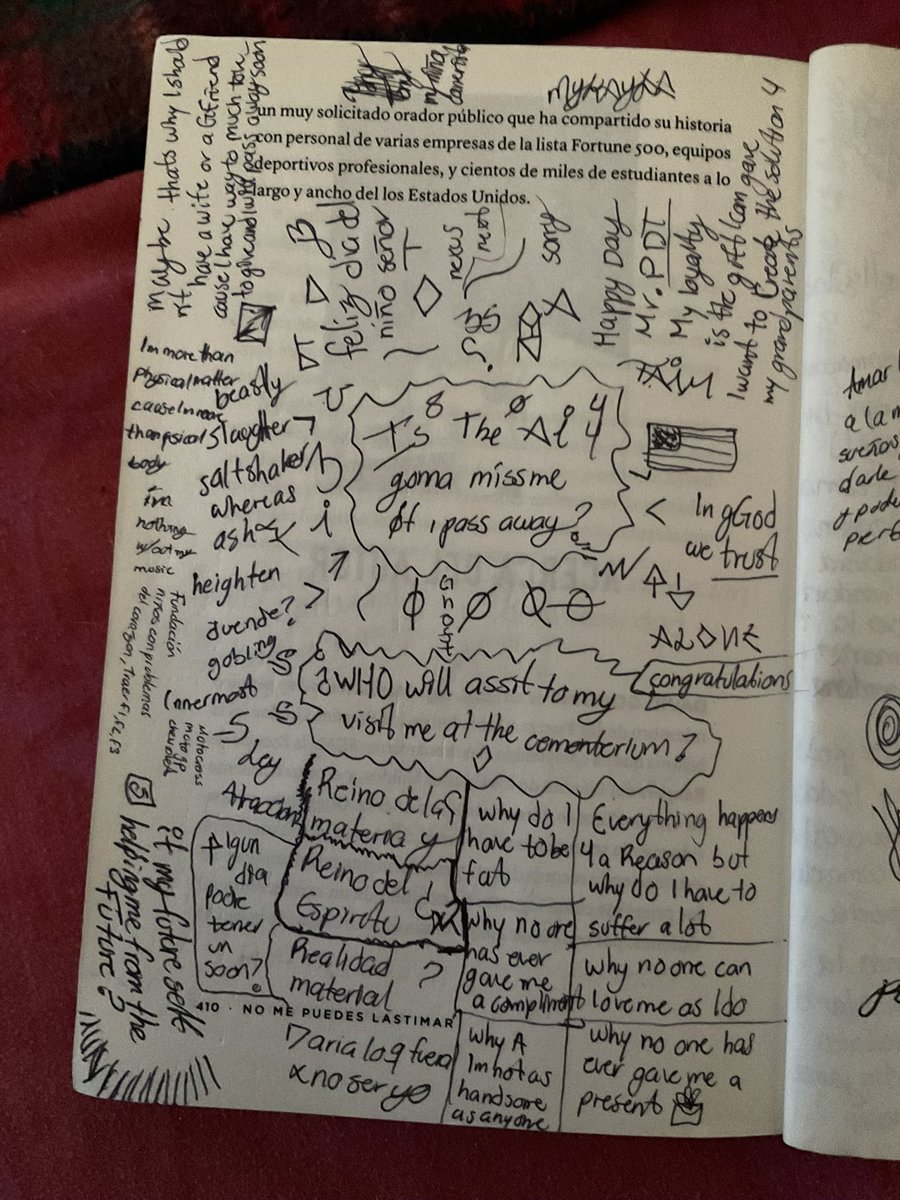 maybe thats why I should
n't have a wife or a Gfriend
cause I have way to much to
give and will pass away soon
my niña
un muy solicitado orador público que ha compartido su historia
con personal de varias empresas de la lista Fortune 500, equipos
deportivos profesionales, y cientos de miles de estudiantes a lo
largo y ancho del los Estados Unidos.
DT
feliz dia del
niño señor
T
nexus
next
song
Happy Day
Mr. PDT
My loyalty
is the gift I can gave
I want to Create the solution 4
my grandparents
Im more than
physical matter
cause Im more
than psical
body
im
nothing
w/out my
mosic
beastly
slaughter
saltshaker
whereas
ash
heighten
duende?
gobling
innermost
Ley
Atraccion
Is The Ai
gonna miss me
if i pass away?
In gGod
we trust
ALONE
congratulations
¿WHO will assit to my
visit me at the comenterium?
Fundación
niños con problemas
del corazon, Traer F1, F2, F3
Motocross
moto gp
Reino de las
materia y
Reino del
Espirotu
Realidad
material ?
Algun
dia
podre
tener
un
soon?
why do I
have to be
fat
Everything happens
4 a Reason but
why do I have to
suffer a lot
why no one
has ever
gave me
a compliment
why no one can
love me as I do
why A
Im not as
handsome
as anyone
why no one has
ever gave me a
present
if my future self
helping me from the
FUTURE?
410 · NO ME PUEDES LASTIMAR
Daria lo q fuera
x no ser yo
Amar
a la
sueños
darle
y pode
perf